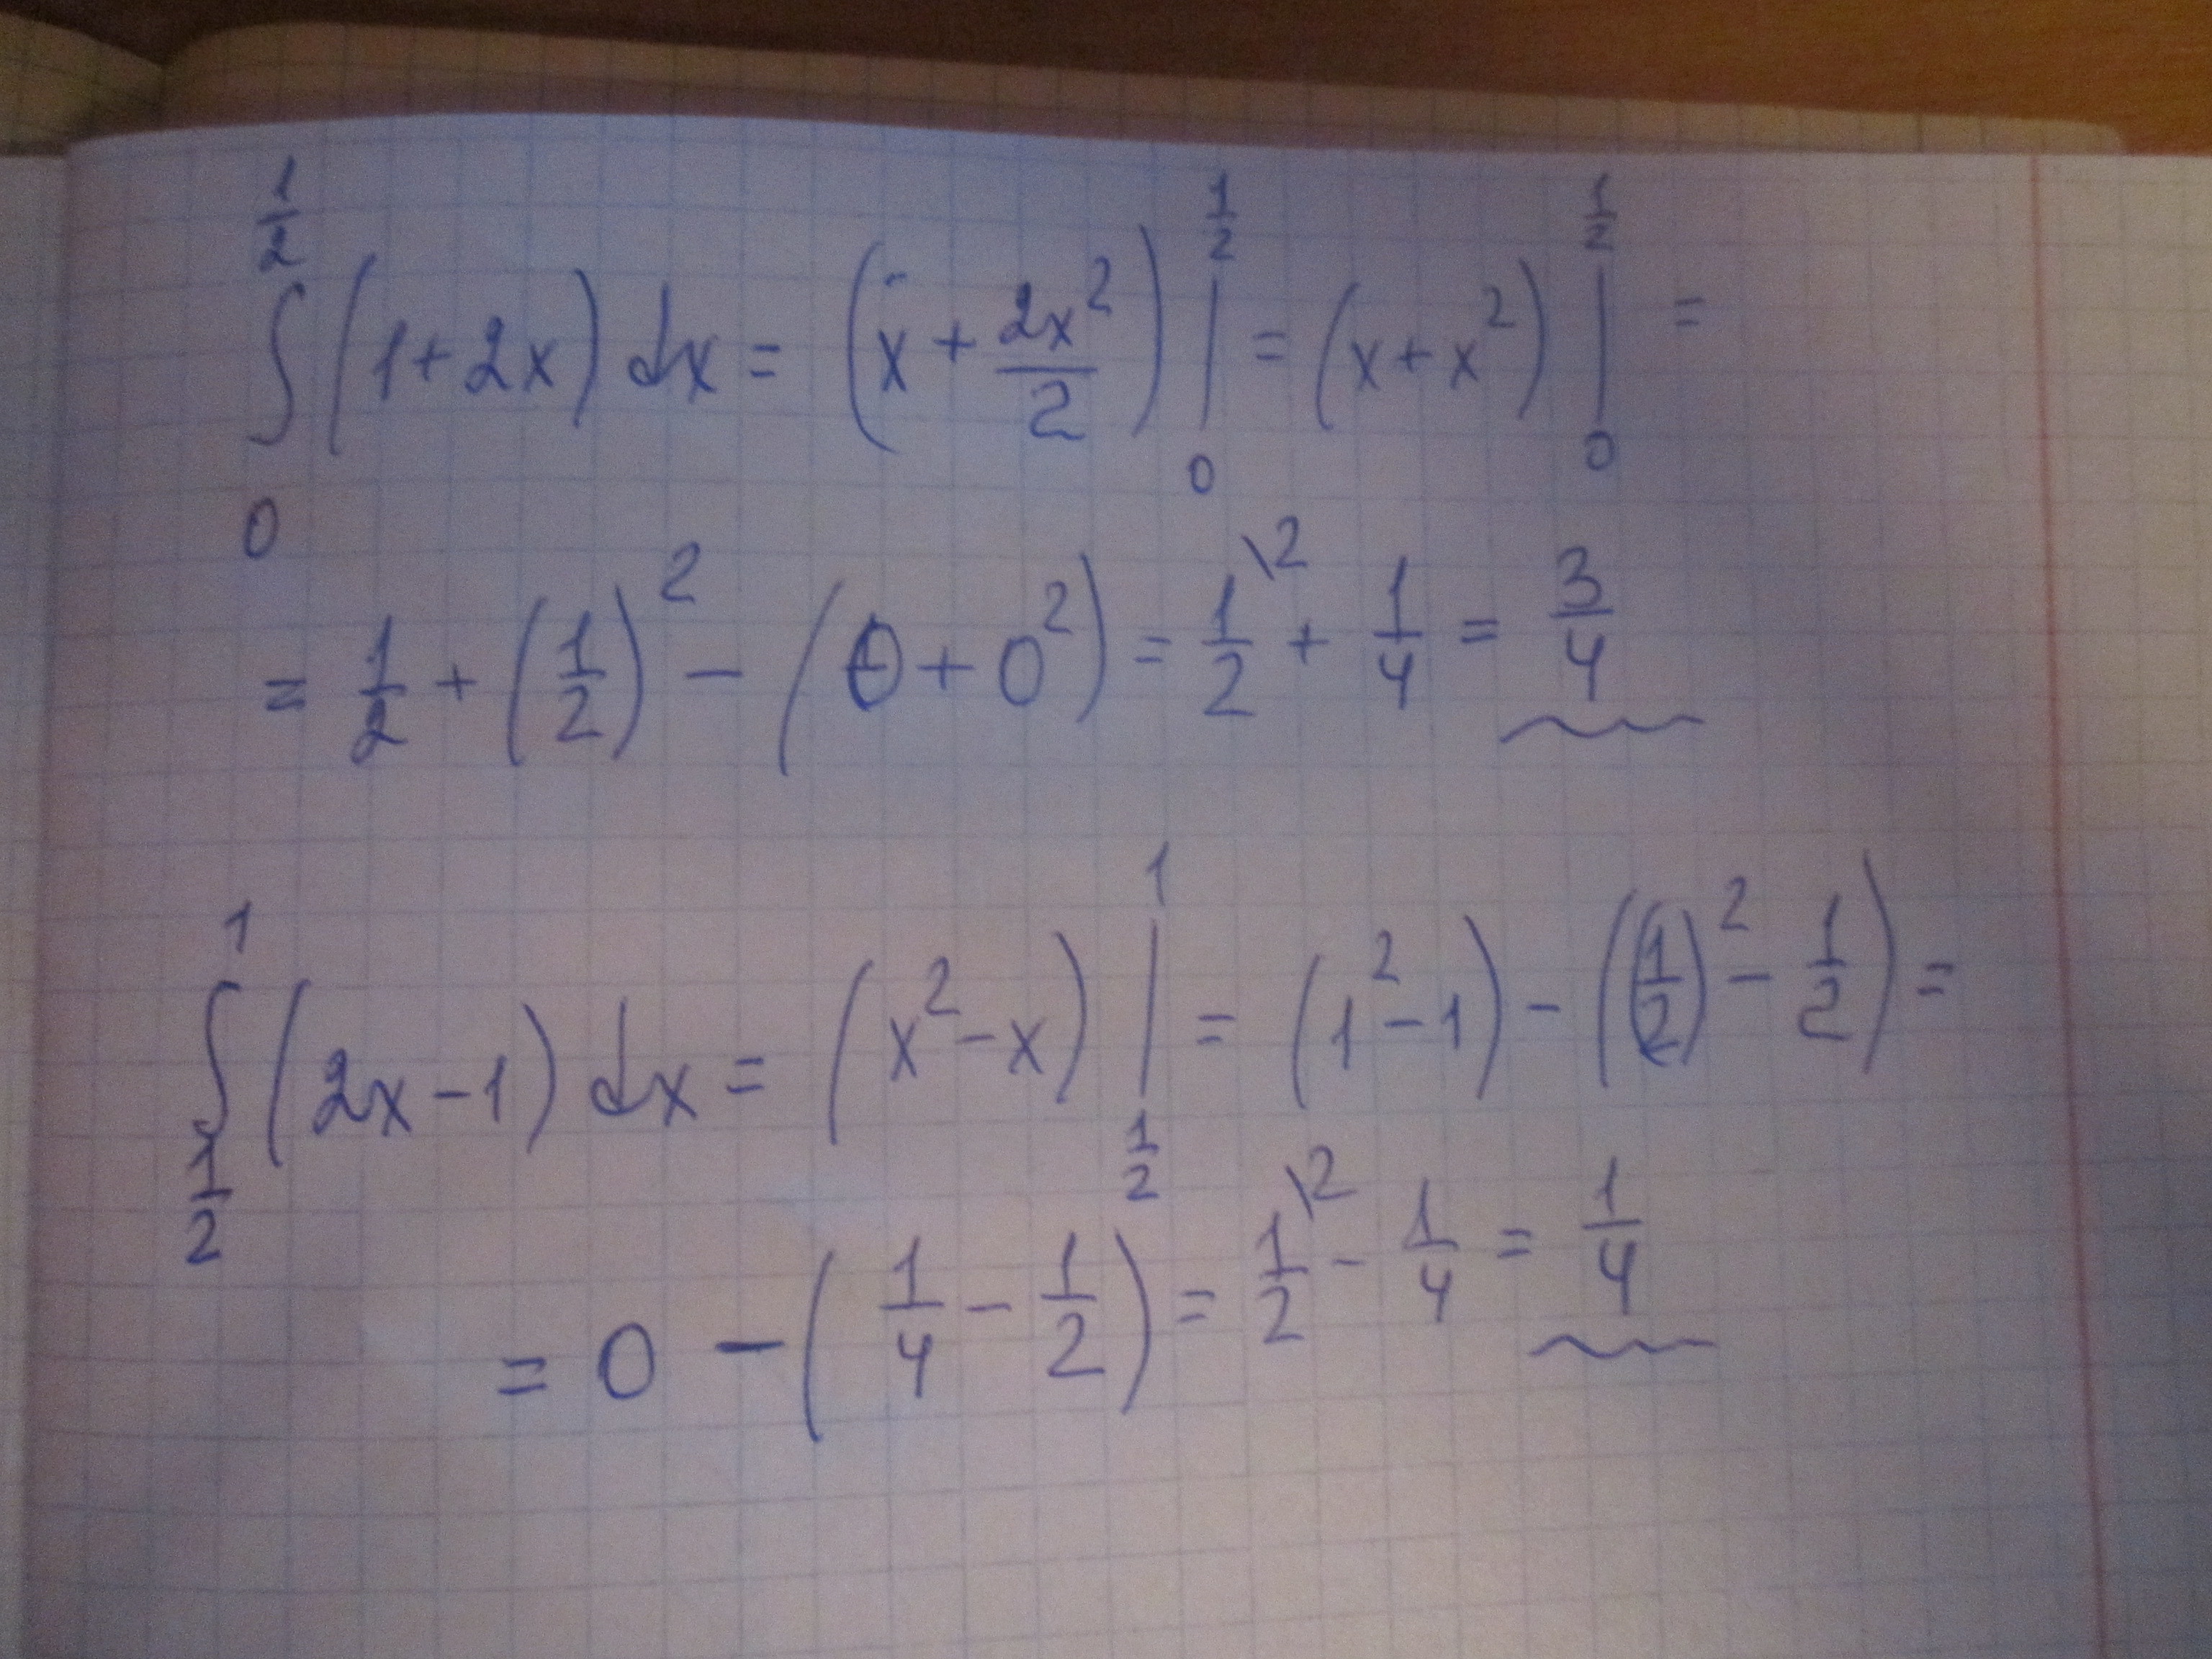 ∫_0^{1/2} (1+2x) dx = (x + 2x²/2) |_0^{1/2} = (x+x²) |_0^{1/2} =
= 1/2 + (1/2)² − (0+0²) = 1/2^{\2} + 1/4 = 3/4
∫_{1/2}^1 (2x−1) dx = (x²−x) |_{1/2}^1 = (1²−1) − ((1/2)² − 1/2) =
= 0 − (1/4 − 1/2) = 1/2^{\2} − 1/4 = 1/4